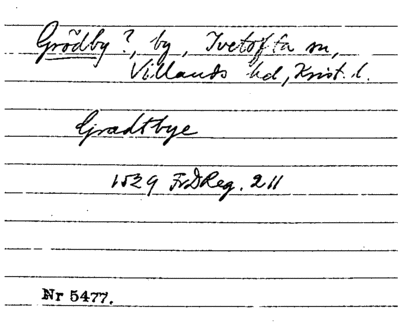 Grödby ?, by, Ivetofta sn,
Villands hd, Krist. l.
Gradtbye
1529 FrDReg. 211
Nr 5477.